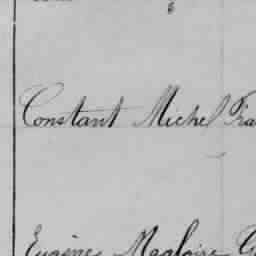 Constant Michel Fra
Eugène Magloire G